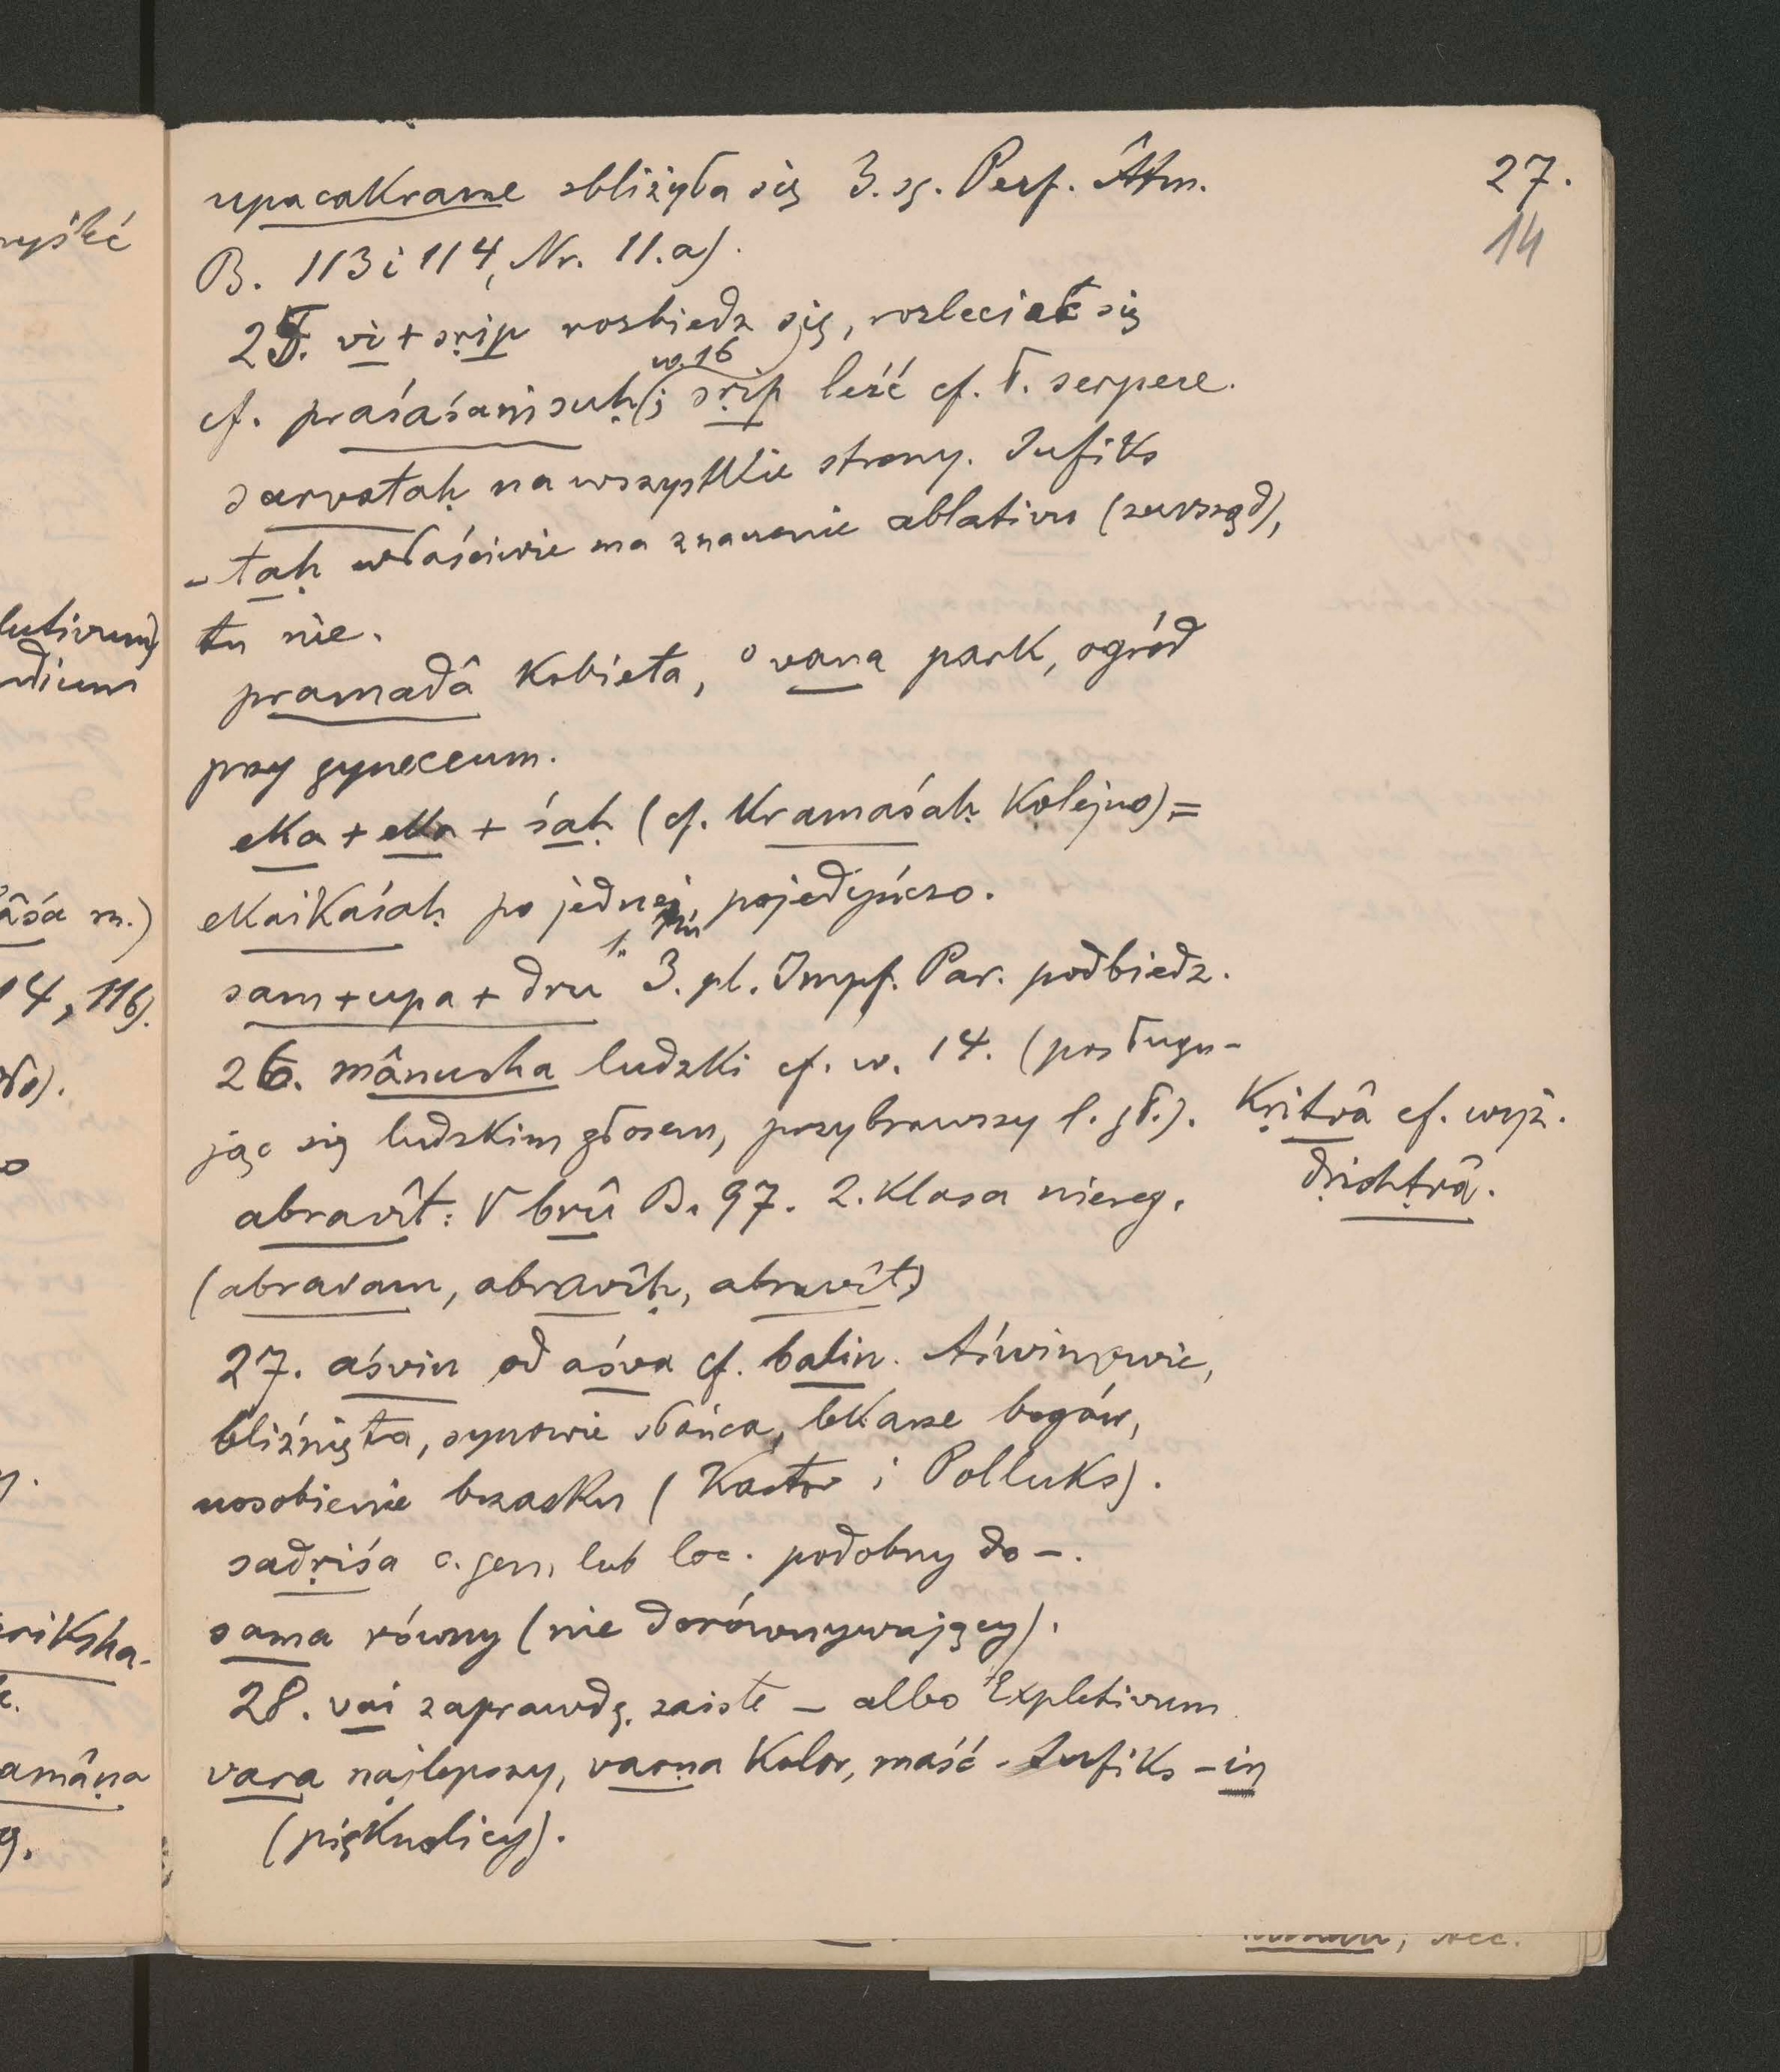 27.
14
upacakrame zbliżyła się 3. sg. Perf. Âtm.
B. 113 i 114, Nr. 11.a).
25. vi + sṛip rozbiedz się, rozleciał się
w. 16
cf. praśaśaṃsuḥ (; sṛip leźć cf. ł. serpere.
sarvataḥ na wszystkie strony. Sufiks
- taḥ właściwie ma znaczenie ablativu (zewsząd),
tu nie.
pramadâ kobieta, ° vana park, ogród
przy gyneceum.
eka + eka + śaḥ (cf. kramaśaḥ kolejno) =
ekaikaśaḥ po jednej, pojedyńczo.
sam + upa + dru 3. pl. Impf. Par. podbiedz.
26. mânusha ludzki cf. w. 14. (posługu-
jąc się ludzkim głosem, przybrawszy l. gł.). kṛitvâ cf. wyż.
dṛishṭvâ.
abravît: √ brû B. 97. 2. klasa niereg.
(abravam, abravîḥ, abravît)
27. aśvin od aśva cf. balin. Aświnowie,
bliźnięta, synowie słońca, lekarze bogów,
uosobienie brzasku (Kastor i Polluks).
sadṛiśa c. gen. lub loc. podobny do -.
sama równy (nie dorównywający).
28. vai zaprawdę, zaiste - albo Expletivum
vara najlepszy, varṇa kolor, maść - Sufiks - in
(pięknolicy).